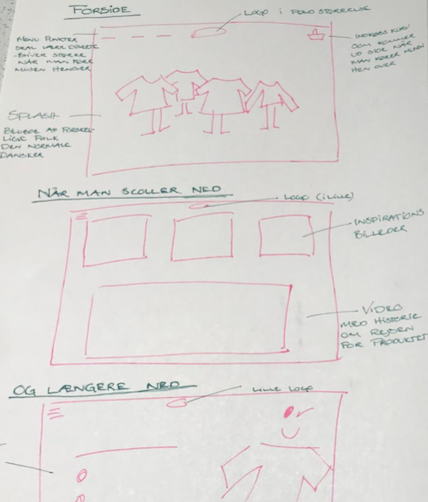 FORSIDE
LOGO I FULD STØRRELSE
MENU PUNKTER
SKAL VÆRE
STØRRE
NÅR MAN FØRER
MUSEN HENOVER
SOM KOMMER
UD NÅR
MAN KØRER MUSEN
HEN OVER
SPLASH
BILLEDE AF FORSKEL-
LIGE FOLK
DEN NORMALE
DANSKER
NÅR MAN SCOLLER NED
LOGO (LILLE)
INSPIRATIONS
BILLEDER
VIDEO
MED HISTORIE
OM REJSEN
FOR PRODUKTET
OG LÆNGERE NED
LILLE LOGO